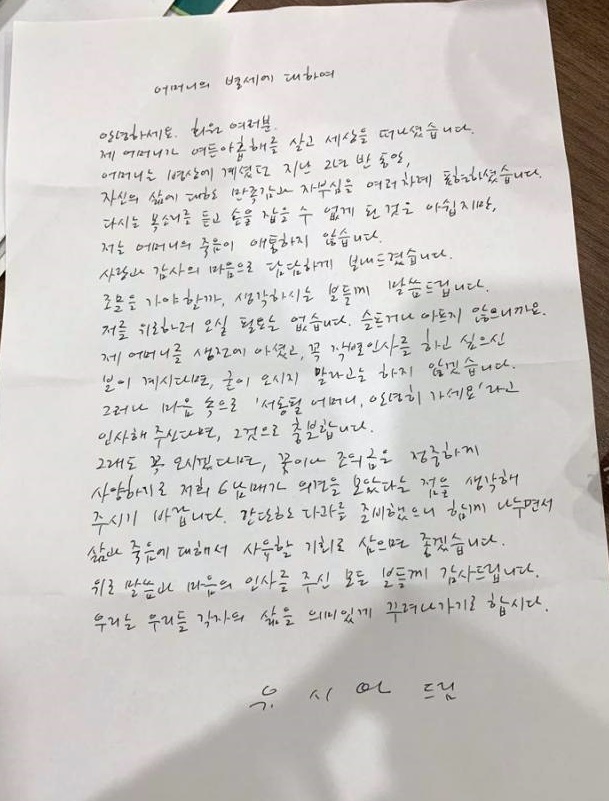 어머니의 별세에 대하여
안녕하세요. 회원 여러분.
제 어머니가 여든아홉해를 살고 세상을 떠나셨습니다.
어머니는 병상에 계셨던 지난 2년 반 동안,
자신의 삶에 대하여 만족감과 자부심을 여러차례 표현하셨습니다.
다시는 목소리를 듣고 손을 잡을 수 없게 된 것은 아쉽지만,
저는 어머니의 죽음이 애통하지 않습니다.
사랑과 감사의 마음으로 담담하게 보내드렸습니다.
조문을 가야할까, 생각하시는 분들께 말씀드립니다.
저를 위로하러 오실 필요는 없습니다. 슬프거나 아프지 않으니까요.
제 어머니를 생전에 아셨고, 꼭 작별인사를 하고 싶으신
분이 계시다면, 굳이 오시지 말라고는 하지 않겠습니다.
그러나 마음 속으로 '서동필 어머니, 안녕히 가세요'라고
인사해 주신다면, 그것으로 충분합니다.
그래도 꼭 오시겠다면, 꽃이나 조의금은 정중하게
사양하기로 저희 6남매가 의견을 모았다는 점을 생각해
주시기 바랍니다. 간단한 다과를 준비했으니 함께 나누면서
삶과 죽음에 대해서 사유할 기회로 삼으면 좋겠습니다.
위로 말씀과 마음의 인사를 주신 모든 분들께 감사드립니다.
우리는 우리들 각자의 삶을 의미있게 꾸려나가기로 합시다.
유 시 민 드림